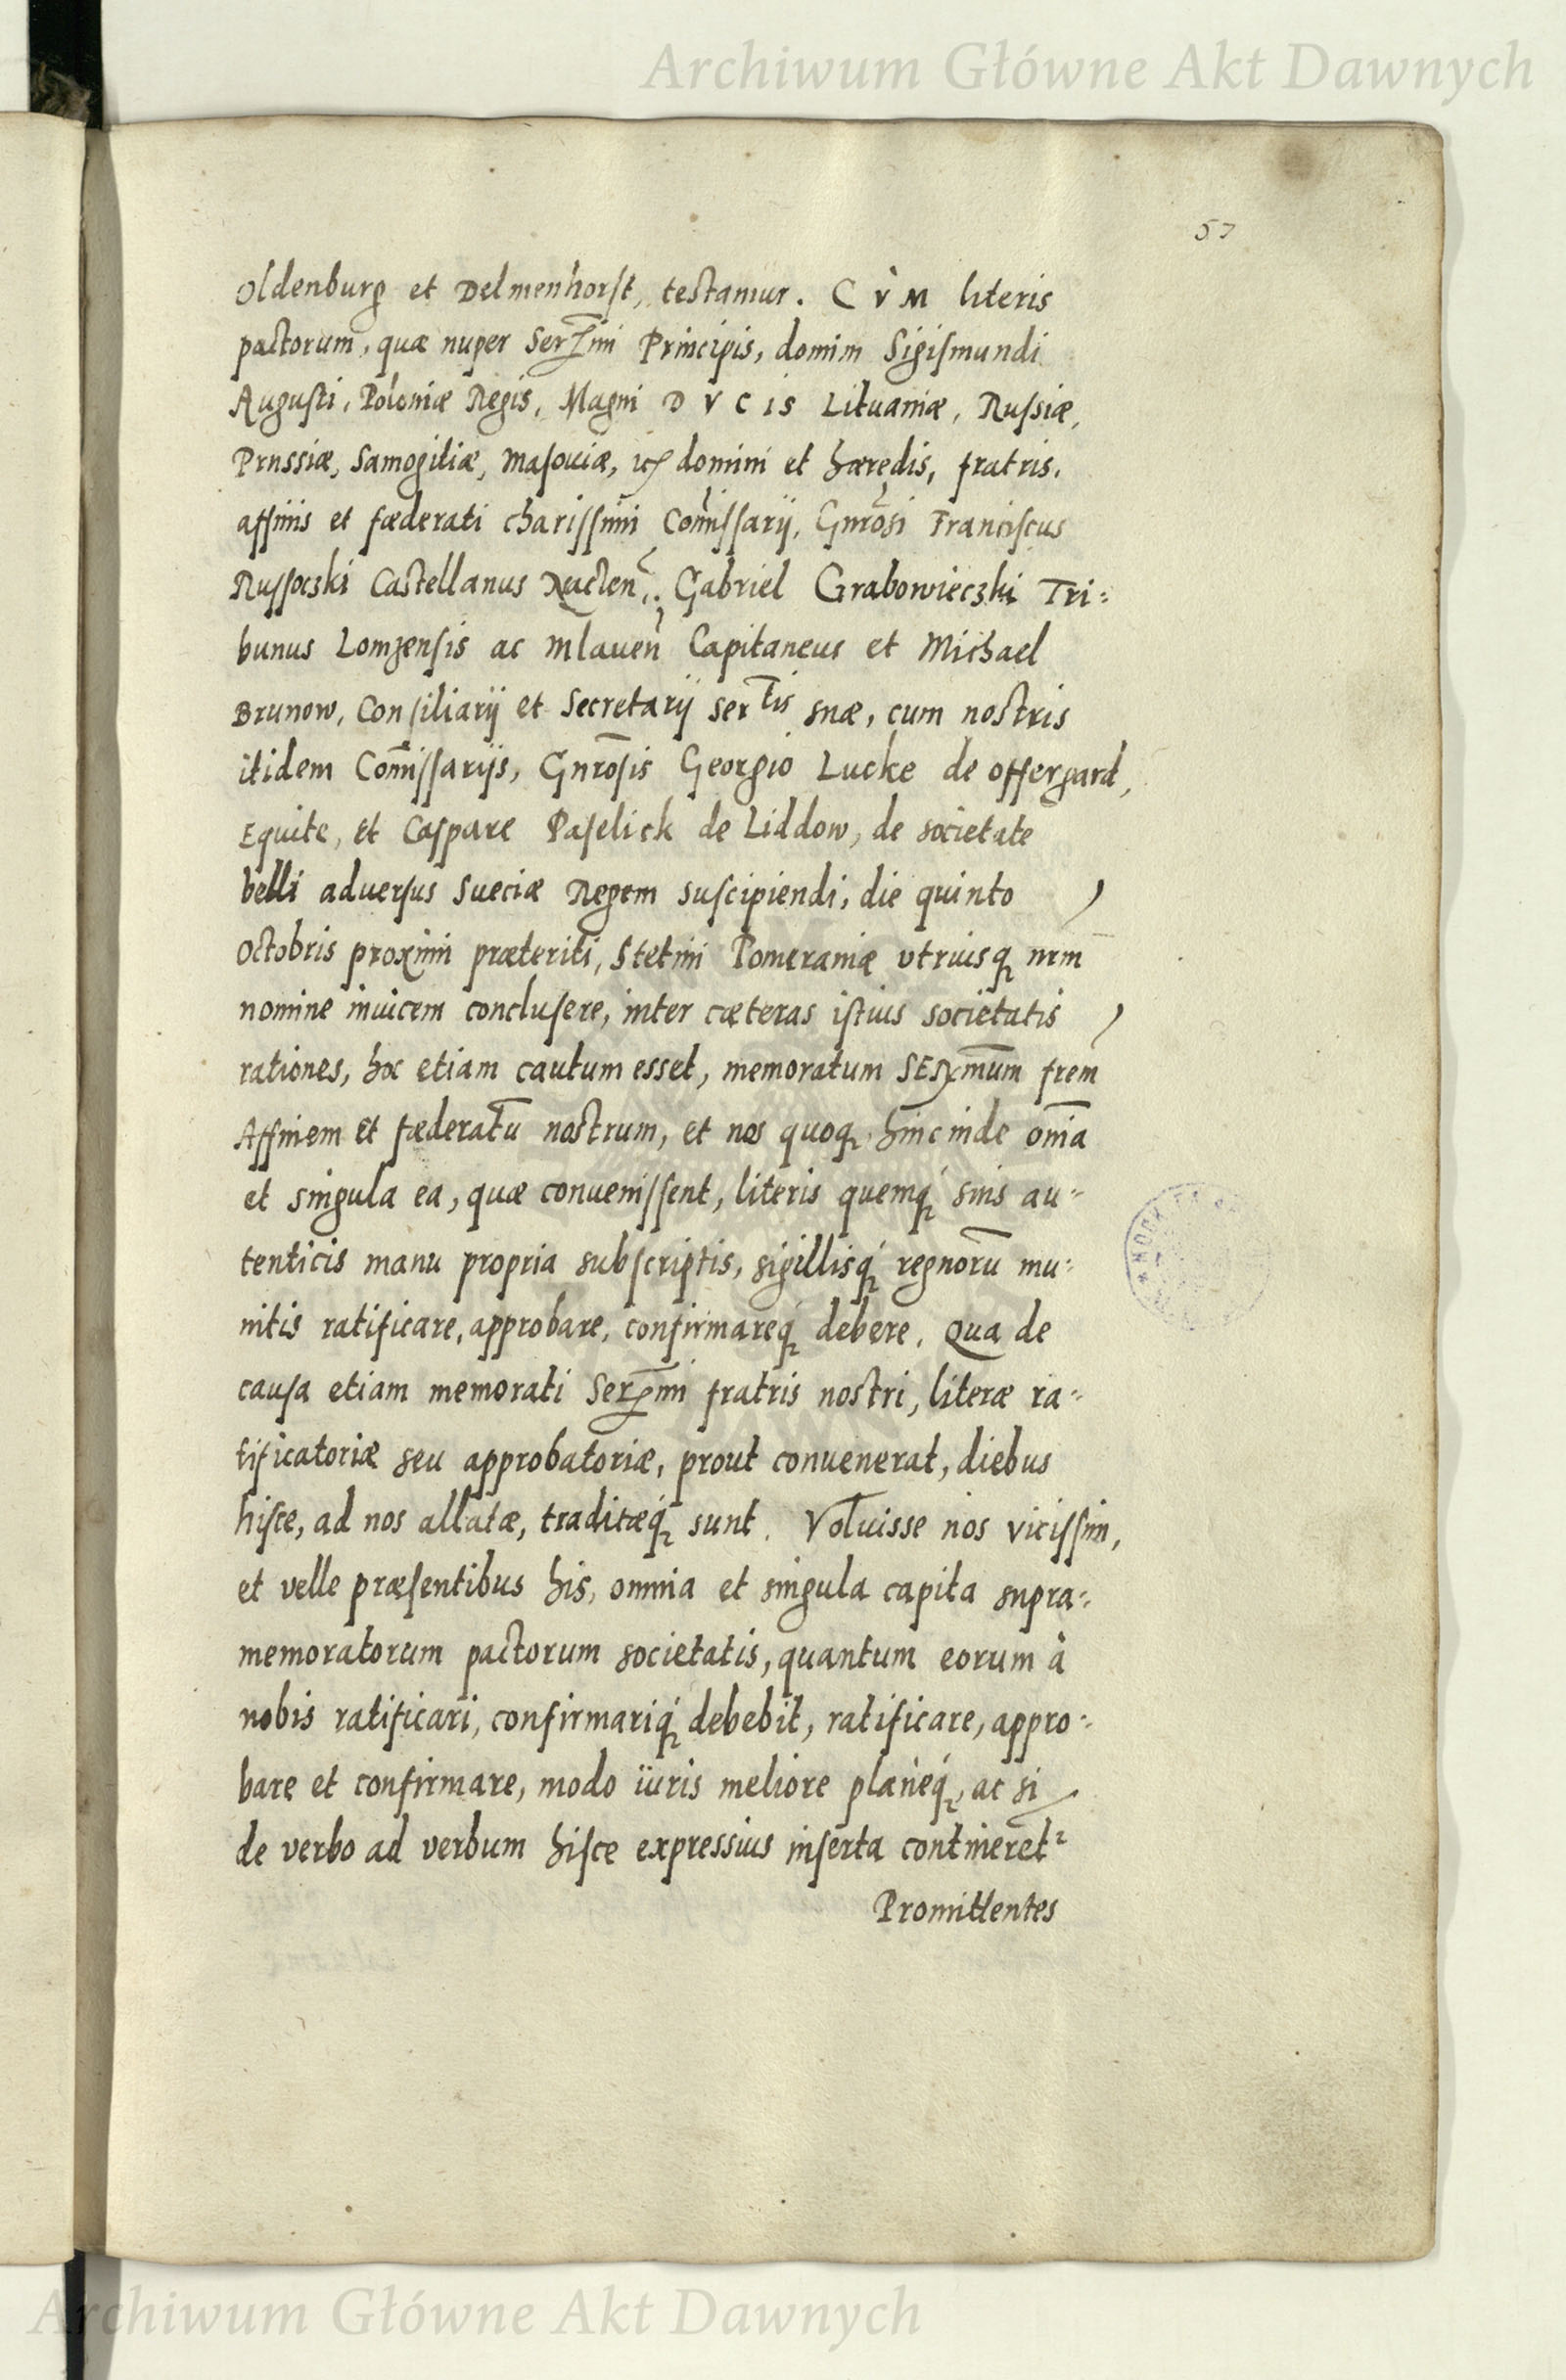 Archiwum Główne Akt Dawnych
57
Oldenburg et Delmenhorst, testamur. CVM literis
pactorum, quæ nuper Serᵐⁱ Principis, domini Sigismundi
Augusti, Poloniæ Regis, Magni DVCis Lituaniæ, Russiæ,
Prussiæ, Samogitiæ, Masouiæ, domini et hæredis, fratris,
affinis et fæderati charissimi Com̄issarij, Gnrōsi Franciscus
Russoczki Castellanus Gabriel Grabowieczki Tri:
bunus Lomzensis ac Mlauen̄ Capitaneus et Michael
Brunow, Consiliarij et Secretarij Serᵗⁱˢ suæ, cum nostris
itidem Com̄issarijs, Gnrōsis Georgio Lucke de Offergard,
Equite, et Caspare Paselick de Liddow, de societate
belli aduersus Sueciæ Regem suscipiendi, die quinto
Octobris proximi præteriti, Stetini Pomeraniæ vtriusq, nrm
nomine inuicem conclusere, inter cæteras istius societatis
rationes, hoc etiam cautum esset, memoratum frem
Affinem et fæderatū nostrum, et nos quoq, hinc inde om̄ia
et singula ea, quæ conuenissent, literis quemq, suis au-
tenticis manu propria subscriptis, sigillisq, regnorū mu-
nitis ratificare, approbare, confirmareq, debere. Qua de
causa etiam memorati Serᵐⁱ fratris nostri, literæ ra-
tificatoriæ seu approbatoriæ, prout conuenerat, diebus
hisce, ad nos allatæ, traditæq, sunt. Voluisse nos vicissim,
et velle præsentibus his, omnia et singula capita supra-
memoratorum pactorum societatis, quantum eorum à
nobis ratificari, confirmariq, debebit, ratificare, appro-
bare et confirmare, modo iuris meliore planeq, ac si
de verbo ad verbum hisce expressius inserta continerēt²
Promittentes
Archiwum Główne Akt Dawnych